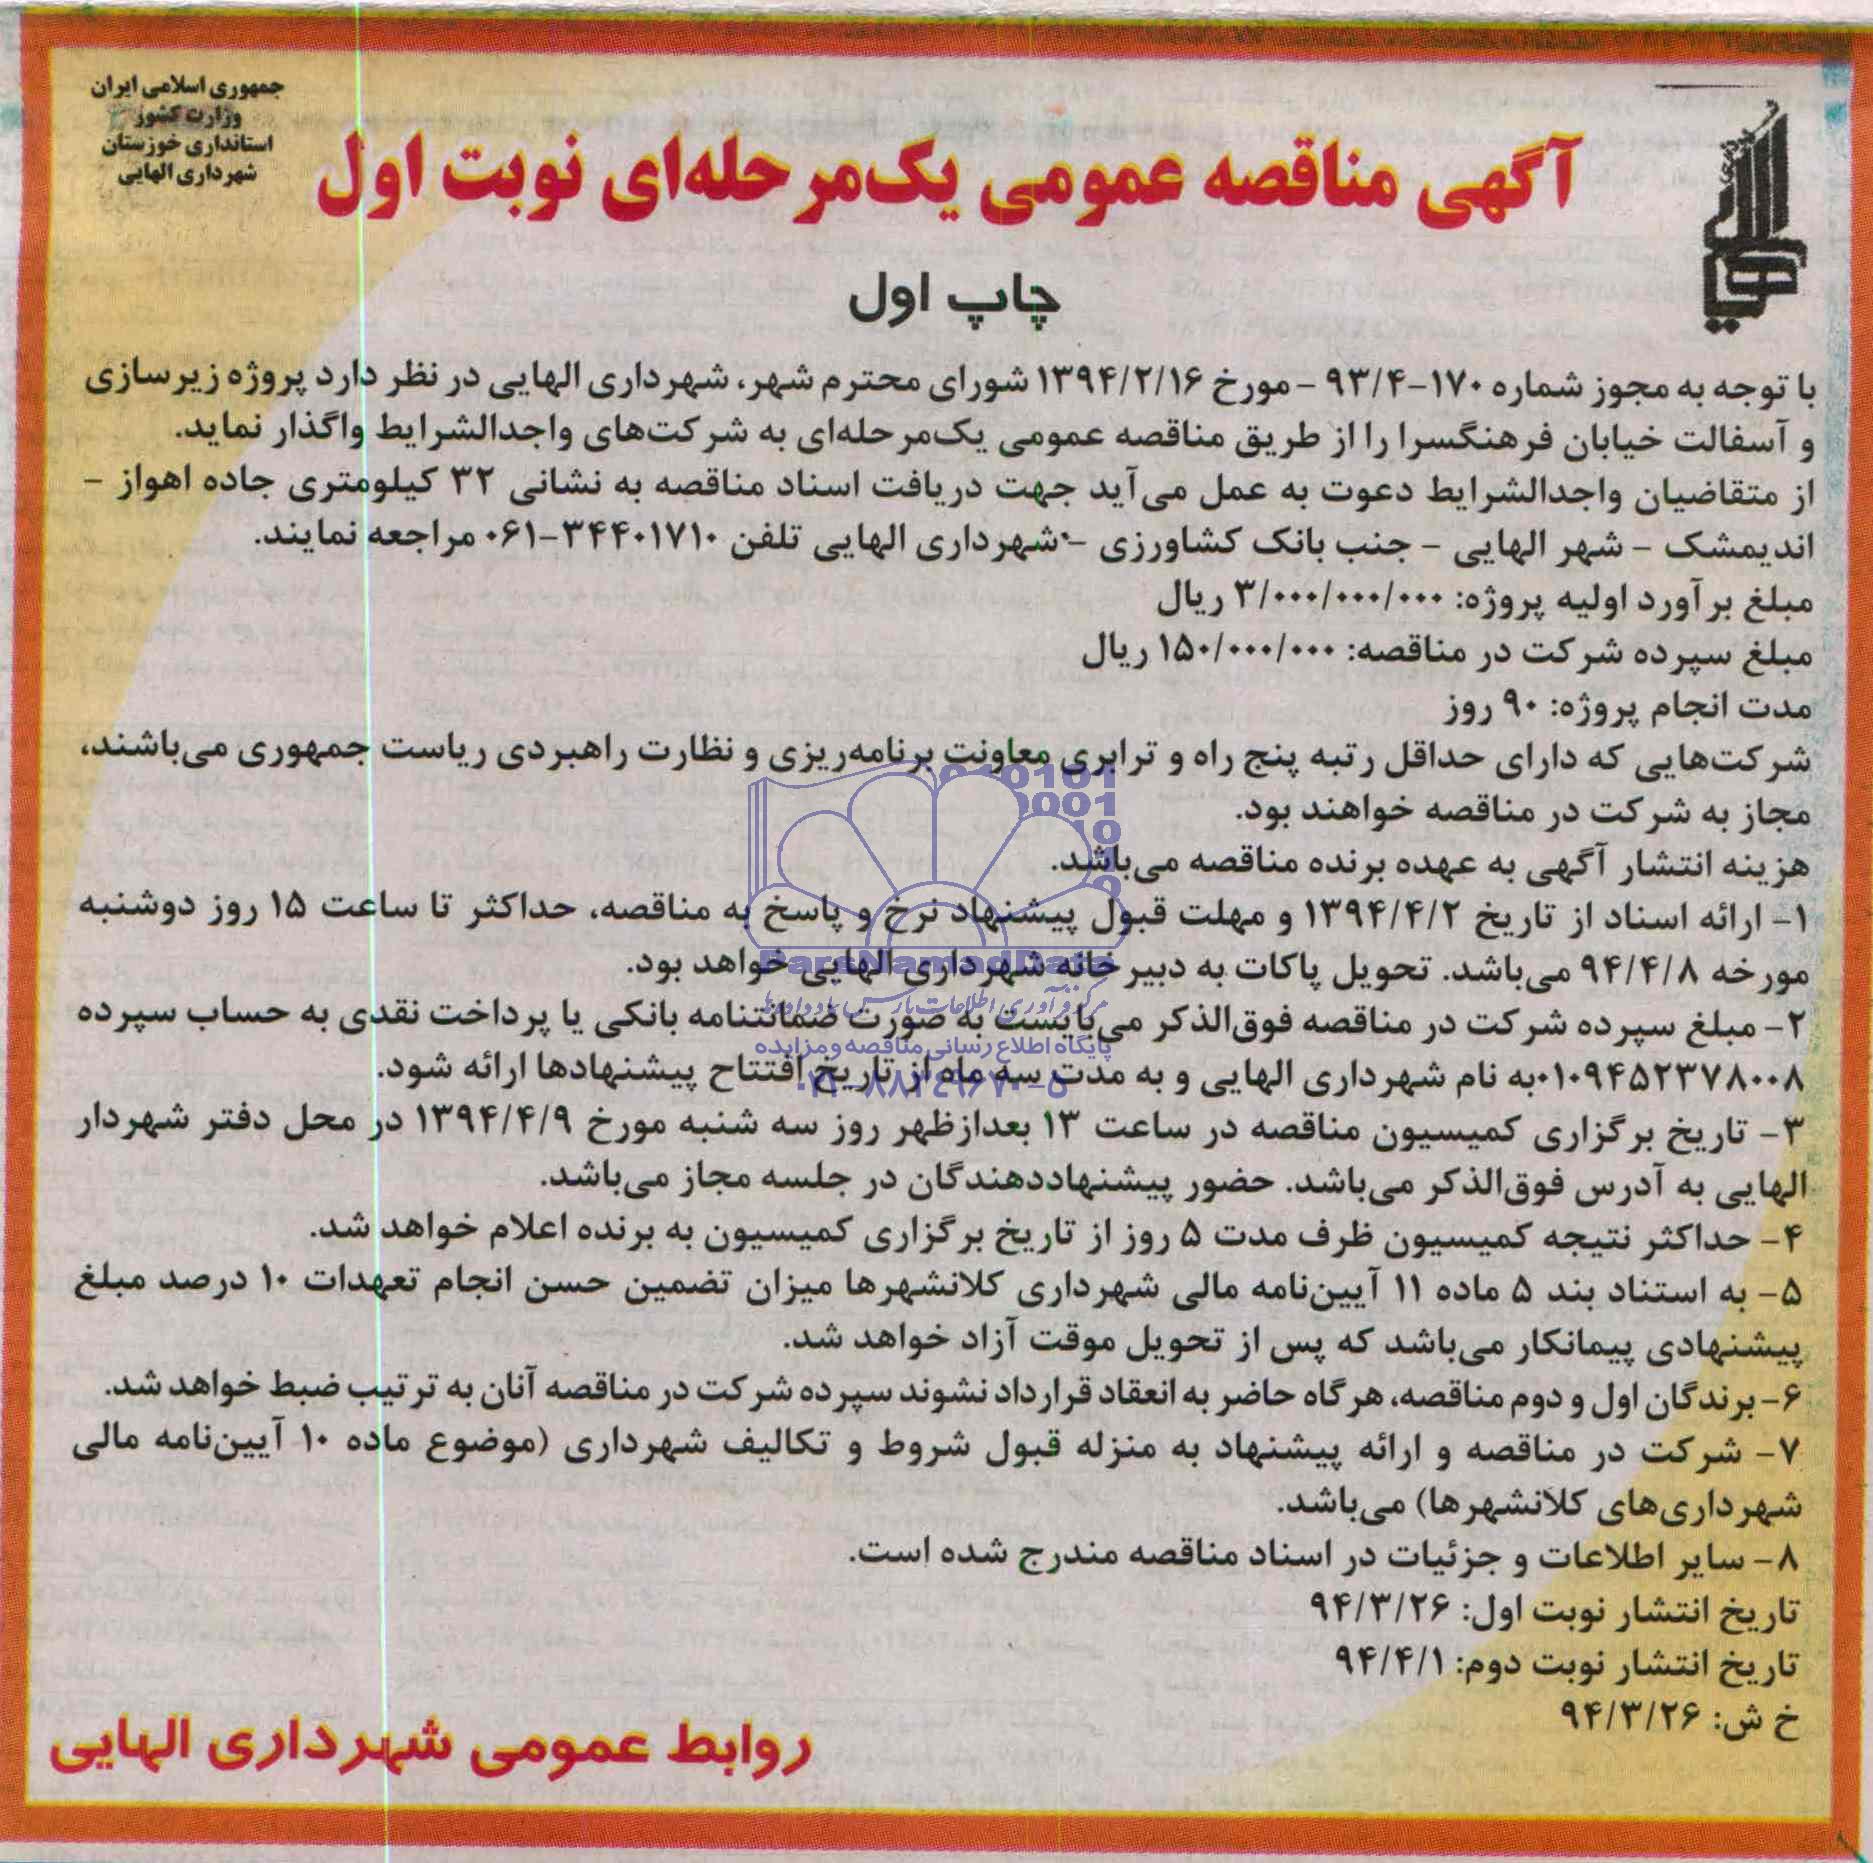 جمهوری اسلامی ایران
وزارت کشور
استانداری خوزستان
شهرداری الهایی
آگهی مناقصه عمومی یک‌مرحله‌ای نوبت اول
چاپ اول
با توجه به مجوز شماره ۱۷۰-۹۳/۴ - مورخ ۱۳۹۴/۲/۱۶ شورای محترم شهر، شهرداری الهایی در نظر دارد پروژه زیرسازی
و آسفالت خیابان فرهنگسرا را از طریق مناقصه عمومی یک‌مرحله‌ای به شرکت‌های واجدالشرایط واگذار نماید.
از متقاضیان واجدالشرایط دعوت به عمل می‌آید جهت دریافت اسناد مناقصه به نشانی ۳۲ کیلومتری جاده اهواز -
اندیمشک - شهر الهایی - جنب بانک کشاورزی - شهرداری الهایی تلفن ۳۴۴۰۱۷۱۰-۰۶۱ مراجعه نمایند.
مبلغ برآورد اولیه پروژه: ۳/۰۰۰/۰۰۰/۰۰۰ ریال
مبلغ سپرده شرکت در مناقصه: ۱۵۰/۰۰۰/۰۰۰ ریال
مدت انجام پروژه: ۹۰ روز
شرکت‌هایی که دارای حداقل رتبه پنج راه و ترابری معاونت برنامه‌ریزی و نظارت راهبردی ریاست جمهوری می‌باشند،
مجاز به شرکت در مناقصه خواهند بود.
هزینه انتشار آگهی به عهده برنده مناقصه می‌باشد.
۱- ارائه اسناد از تاریخ ۱۳۹۴/۴/۲ و مهلت قبول پیشنهاد نرخ و پاسخ به مناقصه، حداکثر تا ساعت ۱۵ روز دوشنبه
مورخه ۹۴/۴/۸ می‌باشد. تحویل پاکات به دبیرخانه شهرداری الهایی خواهد بود.
۲- مبلغ سپرده شرکت در مناقصه فوق‌الذکر می‌بایست به صورت ضمانتنامه بانکی یا پرداخت نقدی به حساب سپرده
۰۱۰۹۴۵۲۳۷۸۰۰۸ به نام شهرداری الهایی و به مدت سه ماه از تاریخ افتتاح پیشنهادها ارائه شود.
۳- تاریخ برگزاری کمیسیون مناقصه در ساعت ۱۳ بعدازظهر روز سه شنبه مورخ ۱۳۹۴/۴/۹ در محل دفتر شهردار
الهایی به آدرس فوق‌الذکر می‌باشد. حضور پیشنهاددهندگان در جلسه مجاز می‌باشد.
۴- حداکثر نتیجه کمیسیون ظرف مدت ۵ روز از تاریخ برگزاری کمیسیون به برنده اعلام خواهد شد.
۵- به استناد بند ۵ ماده ۱۱ آیین‌نامه مالی شهرداری کلانشهرها میزان تضمین حسن انجام تعهدات ۱۰ درصد مبلغ
پیشنهادی پیمانکار می‌باشد که پس از تحویل موقت آزاد خواهد شد.
۶- برندگان اول و دوم مناقصه، هرگاه حاضر به انعقاد قرارداد نشوند سپرده شرکت در مناقصه آنان به ترتیب ضبط خواهد شد.
۷- شرکت در مناقصه و ارائه پیشنهاد به منزله قبول شروط و تکالیف شهرداری (موضوع ماده ۱۰ آیین‌نامه مالی
شهرداری‌های کلانشهرها) می‌باشد.
۸- سایر اطلاعات و جزئیات در اسناد مناقصه مندرج شده است.
تاریخ انتشار نوبت اول: ۹۴/۳/۲۶
تاریخ انتشار نوبت دوم: ۹۴/۴/۱
خ ش: ۹۴/۳/۲۶
روابط عمومی شهرداری الهایی
ParsNamadData
مرکز فرآوری اطلاعات پارس نماد داده‌ها
پایگاه اطلاع رسانی مناقصه و مزایده
۰۲۱-۸۸۳۴۹۶۷۰-۵